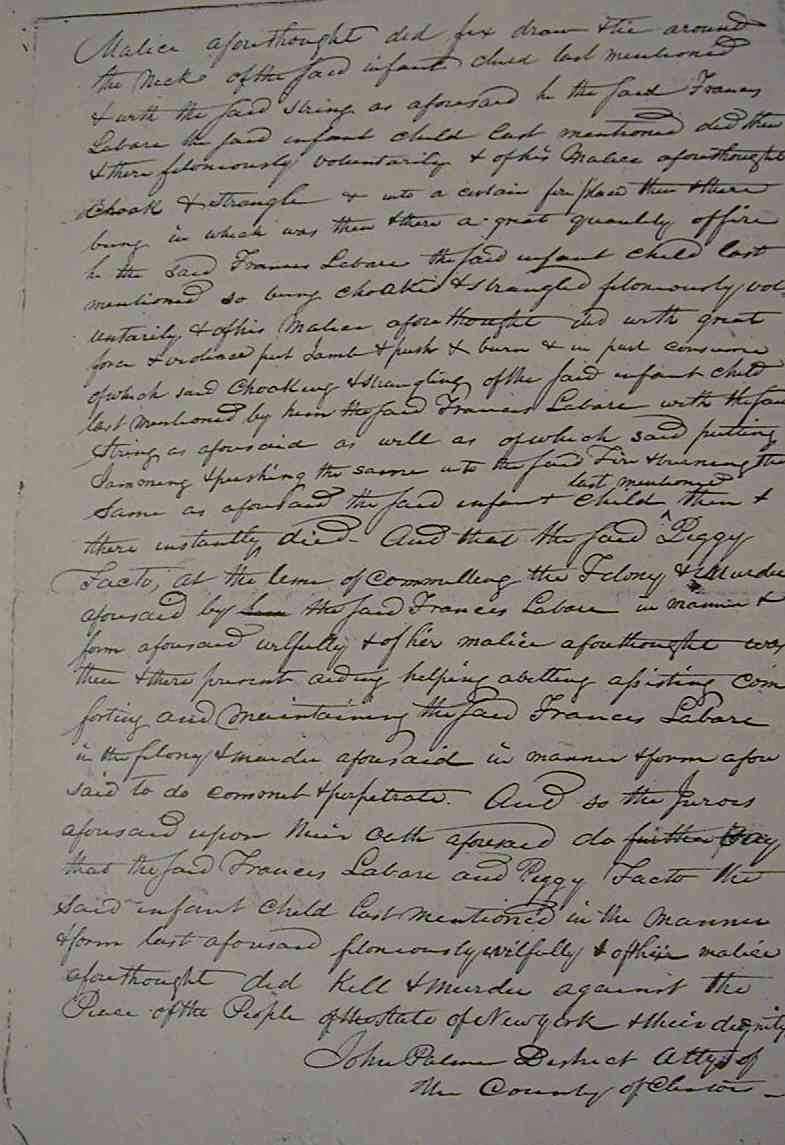 Malice aforethought did fix draw & tie around
the Neck of the said infant child last mentioned
& with the said string as aforesaid he the said Francis
Labare the said infant child last mentioned did then
& there feloniously voluntarily & of his Malice aforethought
choak & strangle & into a certain fire place then & there
being in which was then & there a great quantity of fire
he the said Francis Labare the said infant child last
mentioned so being choaked & strangled feloniously vol-
untarily & of his Malice aforethought did with great
force & violence put Jamb & push & burn & in part consume
of which said Choaking & strangling of the said infant child
last mentioned by him the said Francis Labare with the said
string as aforesaid as well as of which said putting
Jamming & pushing the same into the said Fire & burning the
last mentioned
Same as aforesaid the said infant child ^ then &
there instantly died - And that the said Peggy
Facto, at the time of committing the Felony & Murder
aforesaid by him the said Francis Labare in manner &
form aforesaid wilfully & of her malice aforethought was
then & there present aiding helping abetting assisting com
forting and maintaining the said Francis Labare
in the felony & murder aforesaid in manner & form afore
said to do commit & perpetrate. And so the Jurors
aforesaid upon their oath aforesaid do further say
that the said Francis Labare and Peggy Facto the
said infant child last mentioned in the manner
& form last aforesaid feloniously wilfully & of their malice
aforethought did kill & murder against the
Peace of the People of the State of New York & their dignity
John Palmer District Atty of
the County of Clinton -